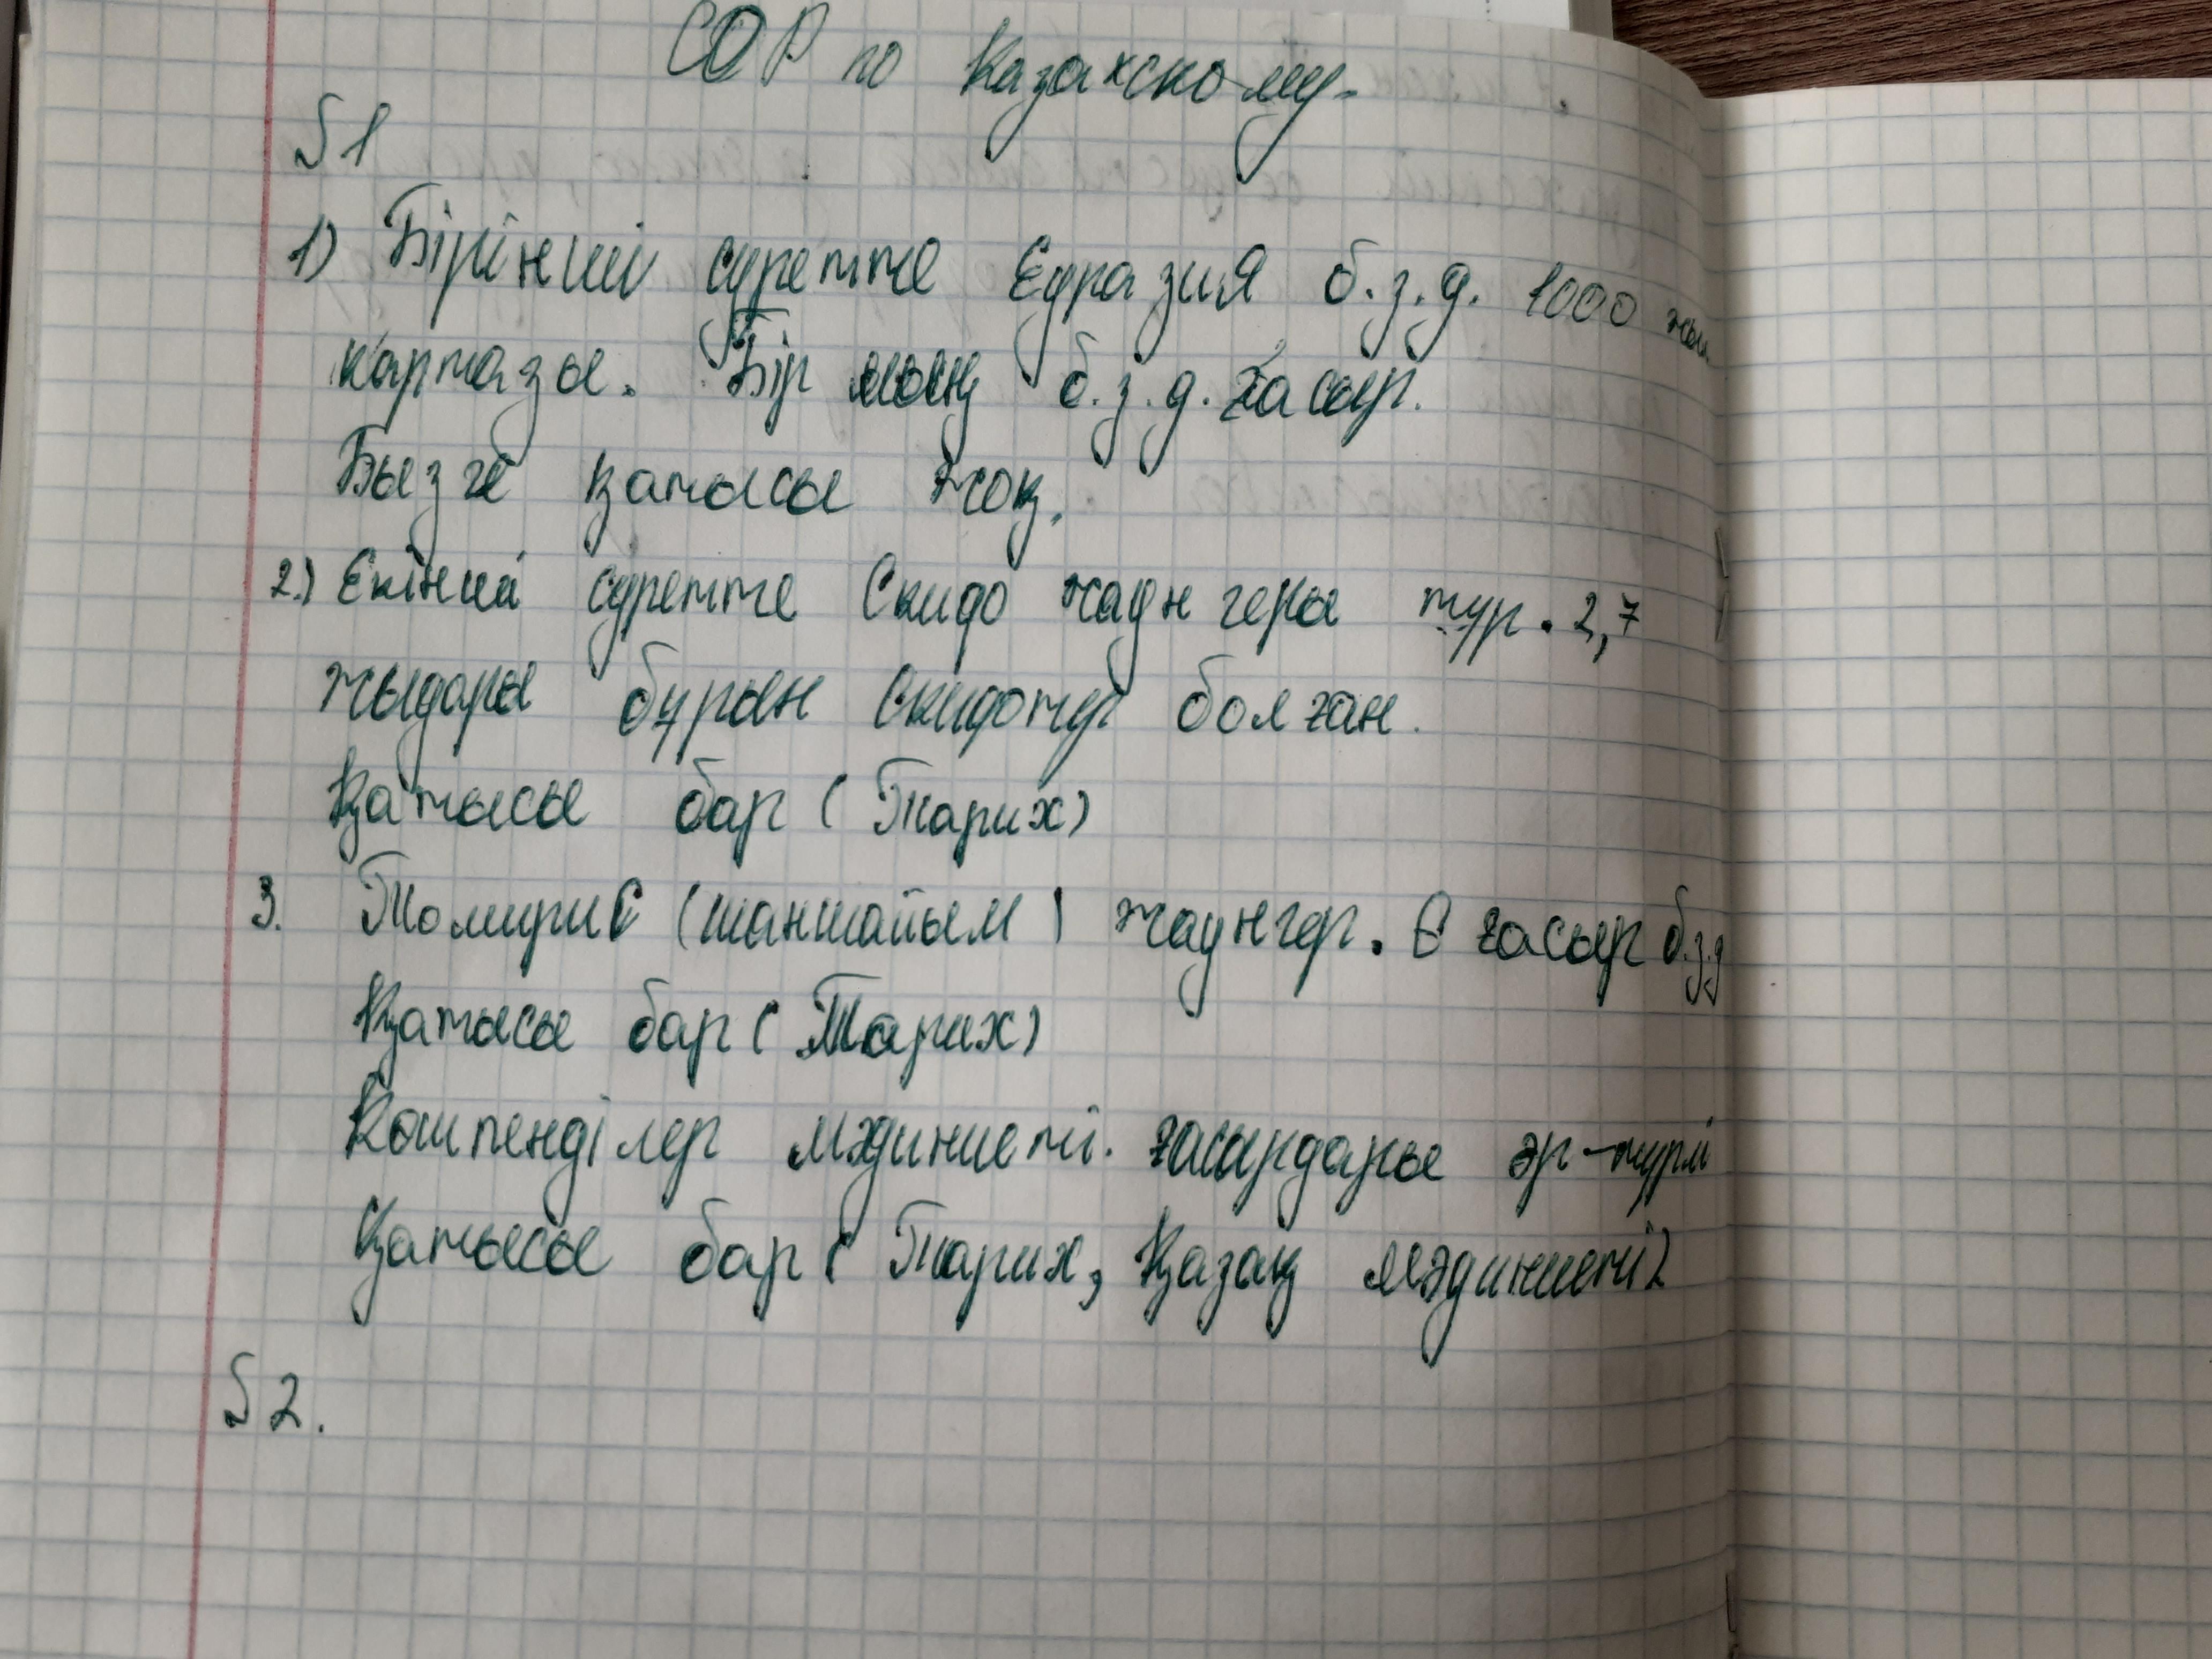 СОР по Казахскому.
§1
1) Бірінші суретте Еуразия б.з.д. 1000 жыл
картазы. Бір мың б.з.д. ғасыр.
Бызге қатысы жоқ.
2.) Екінші суретте Скифо жауңгеры тур. 2,7
бұрын болған.
Қатысы бар (Тарих)
3. Томирис (ханшайым) жауңгер. 6 ғасыр б.з.д
Қатысы бар (Тарих)
Кошпенділер мәдинеті. әр-түрлі
Қатысы бар (Тарих, Қазақ мәдинеті)
§2.